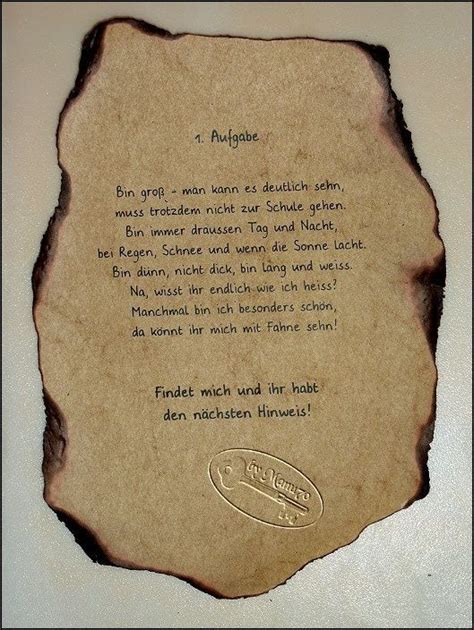 1. Aufgabe
Bin groß - man kann es deutlich sehn,
muss trotzdem nicht zur Schule gehen.
Bin immer draussen Tag und Nacht,
bei Regen, Schnee und wenn die Sonne lacht.
Bin dünn, nicht dick, bin lang und weiss.
Na, wisst ihr endlich wie ich heiss?
Manchmal bin ich besonders schön,
da könnt ihr mich mit Fahne sehn!
Findet mich und ihr habt
den nächsten Hinweis!
by Mamu70